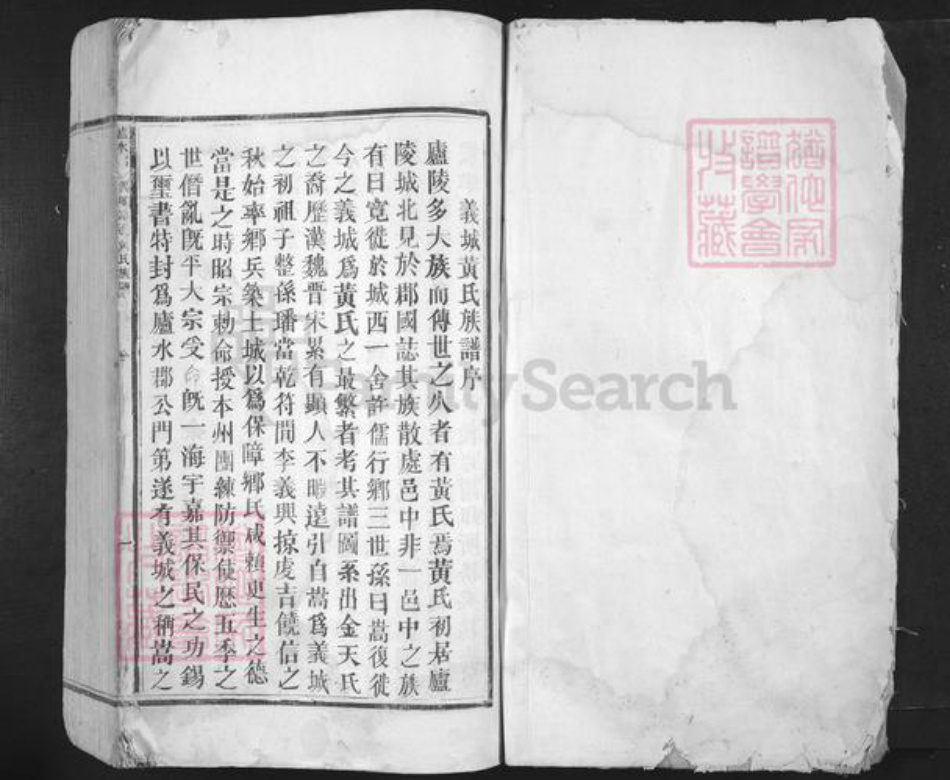 義城黃氏族譜序
廬陵多大族而傳世之久者有黃氏焉黃氏初居廬
陵城北見於郡國誌其族散處邑中非一邑中之族
有曰寬徙於城西一舍許儒行鄉三世孫曰嵩復徙
今之義城爲黃氏之最繁者考其譜圖系出金天氏
之裔歷漢魏晋宋累有顯人不暇遠引自嵩爲義城
之初祖子整孫璠當乾符間李義興掠虔吉饒信之
秋始率鄉兵築土城以爲保障鄉民咸賴更生之德
當是之時昭宗勅命授本州團練防禦使歷五季之
世僭亂既平大宗受命既一海宇嘉其保民之功錫
以璽書特封爲廬水郡公門第遂有義城之稱嵩之
氏族譜
一
譜學會
收藏
CitySearch